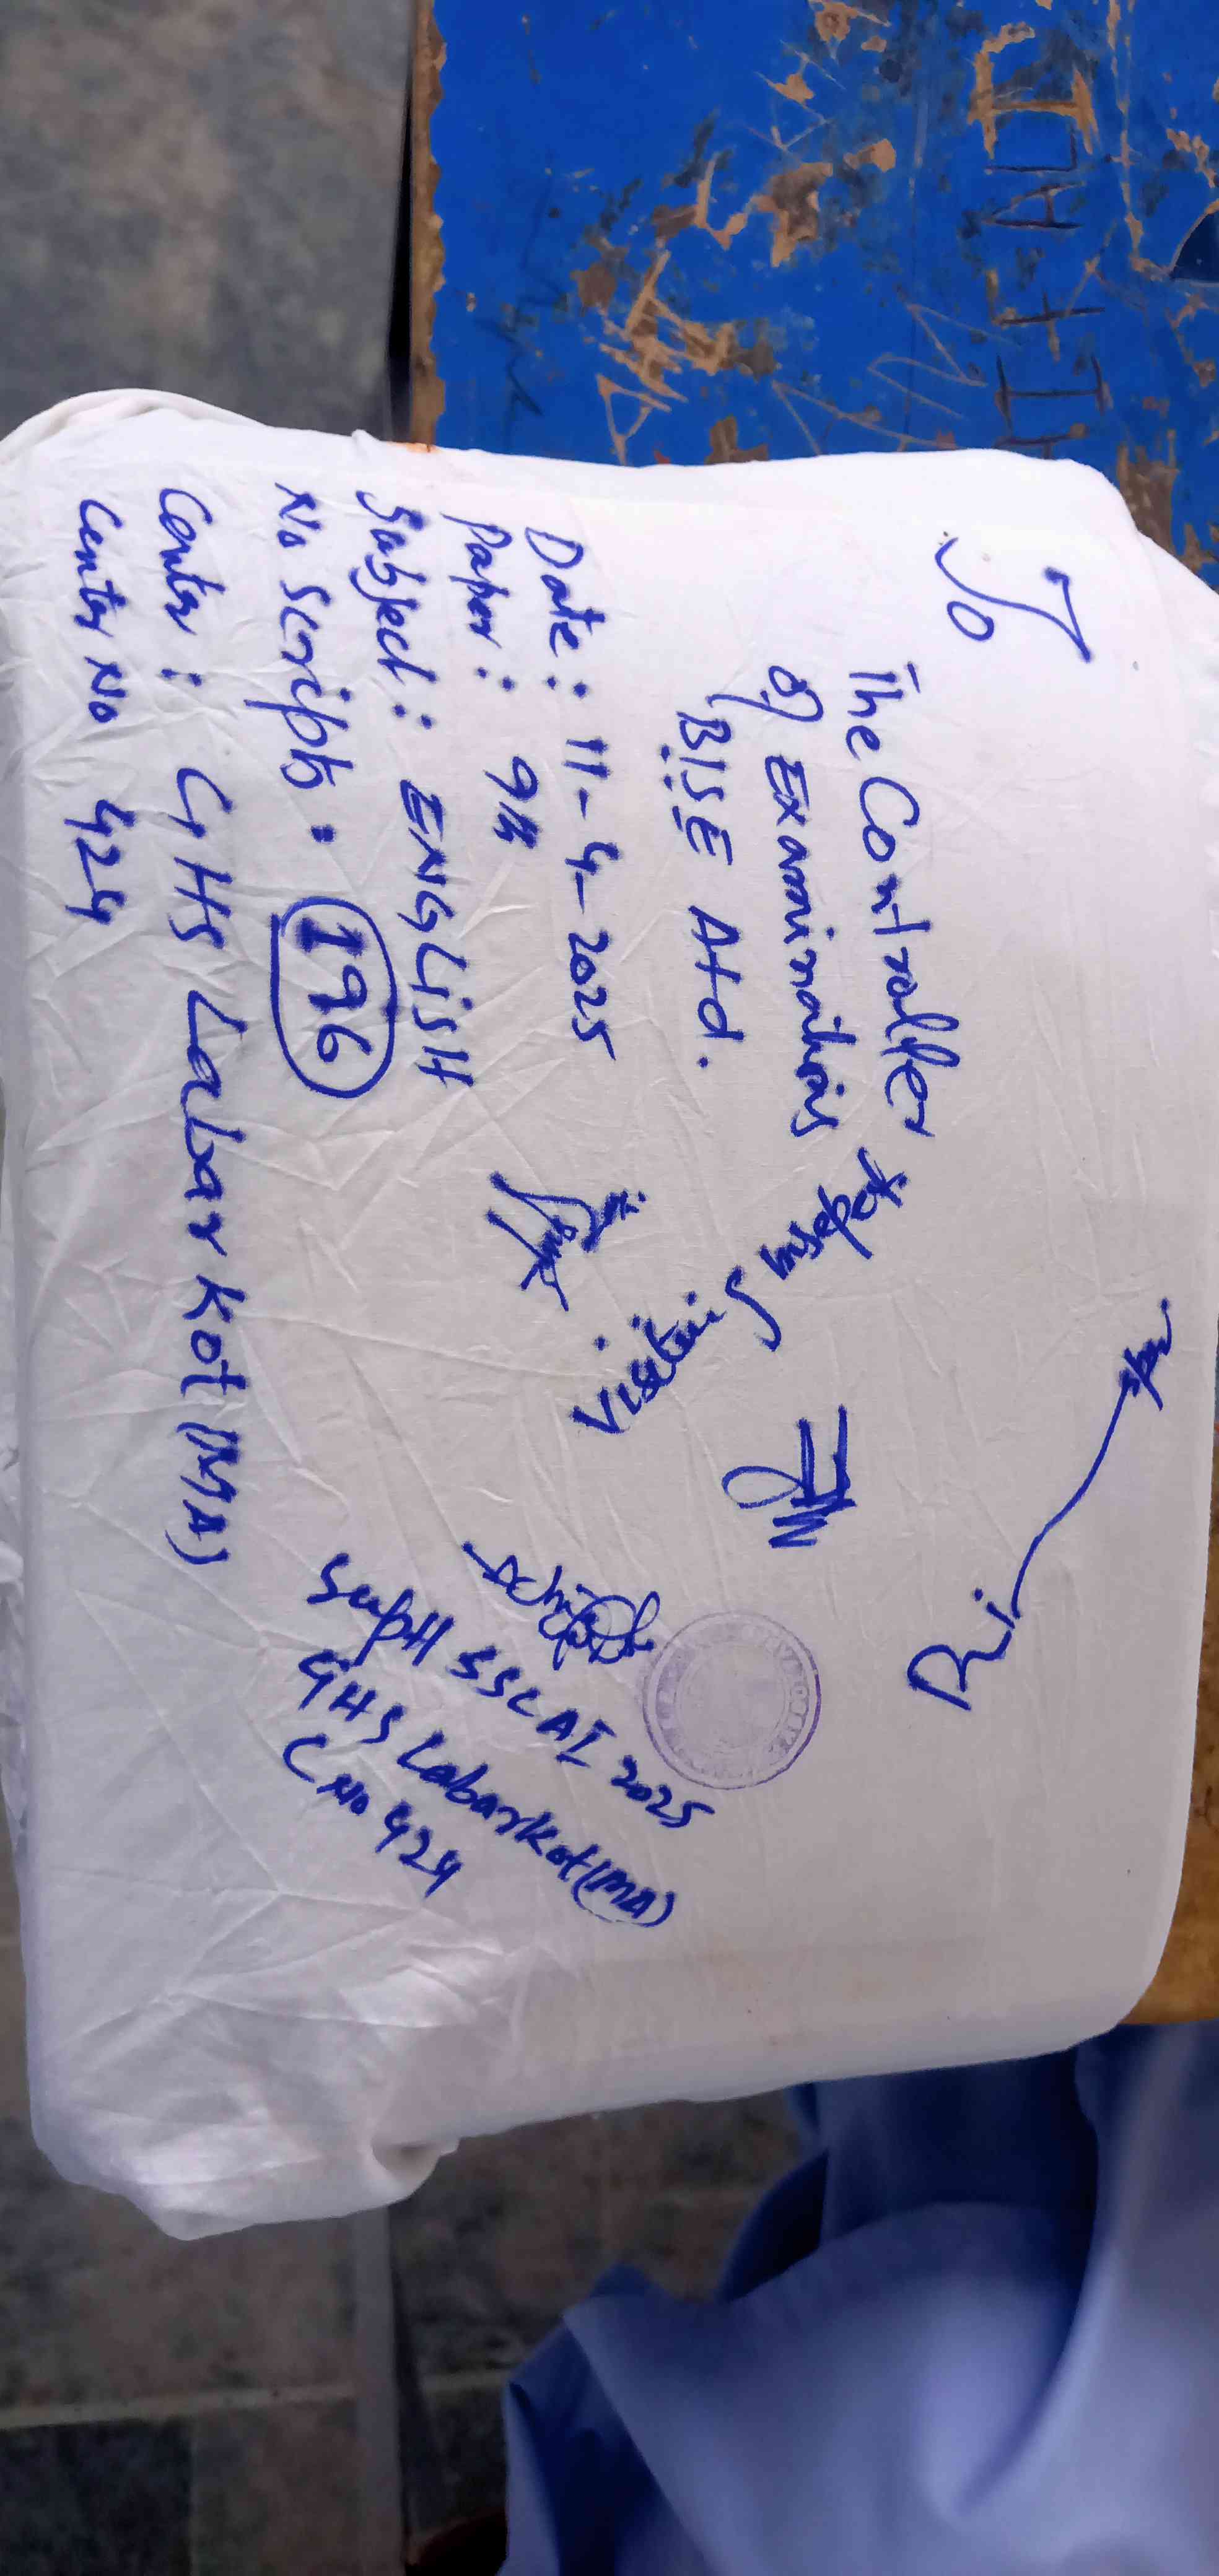 To
The Controller
of Examinations
BISE Atd.
Date : 11-4-2025
Paper : 9th
Subject : ENGLISH
No Scripts : 196
Center : GHS Labar Kot (MA)
Center No 424
Visiting
Supdt SSC AI 2025
GHS Labarkot (MA)
C No 424